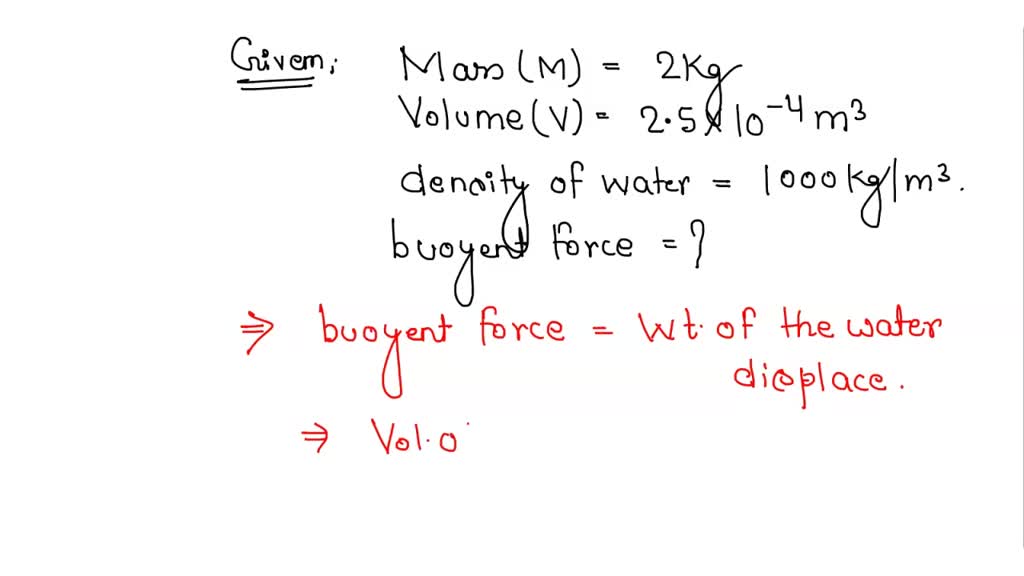 Given;
Mass (M) = 2Kg
Volume (V) = 2.5 X 10⁻⁴ m³
density of water = 1000 kg/m³.
buoyent force = ?
⇒ buoyent force = Wt. of the water
displace.
⇒ Vol. o